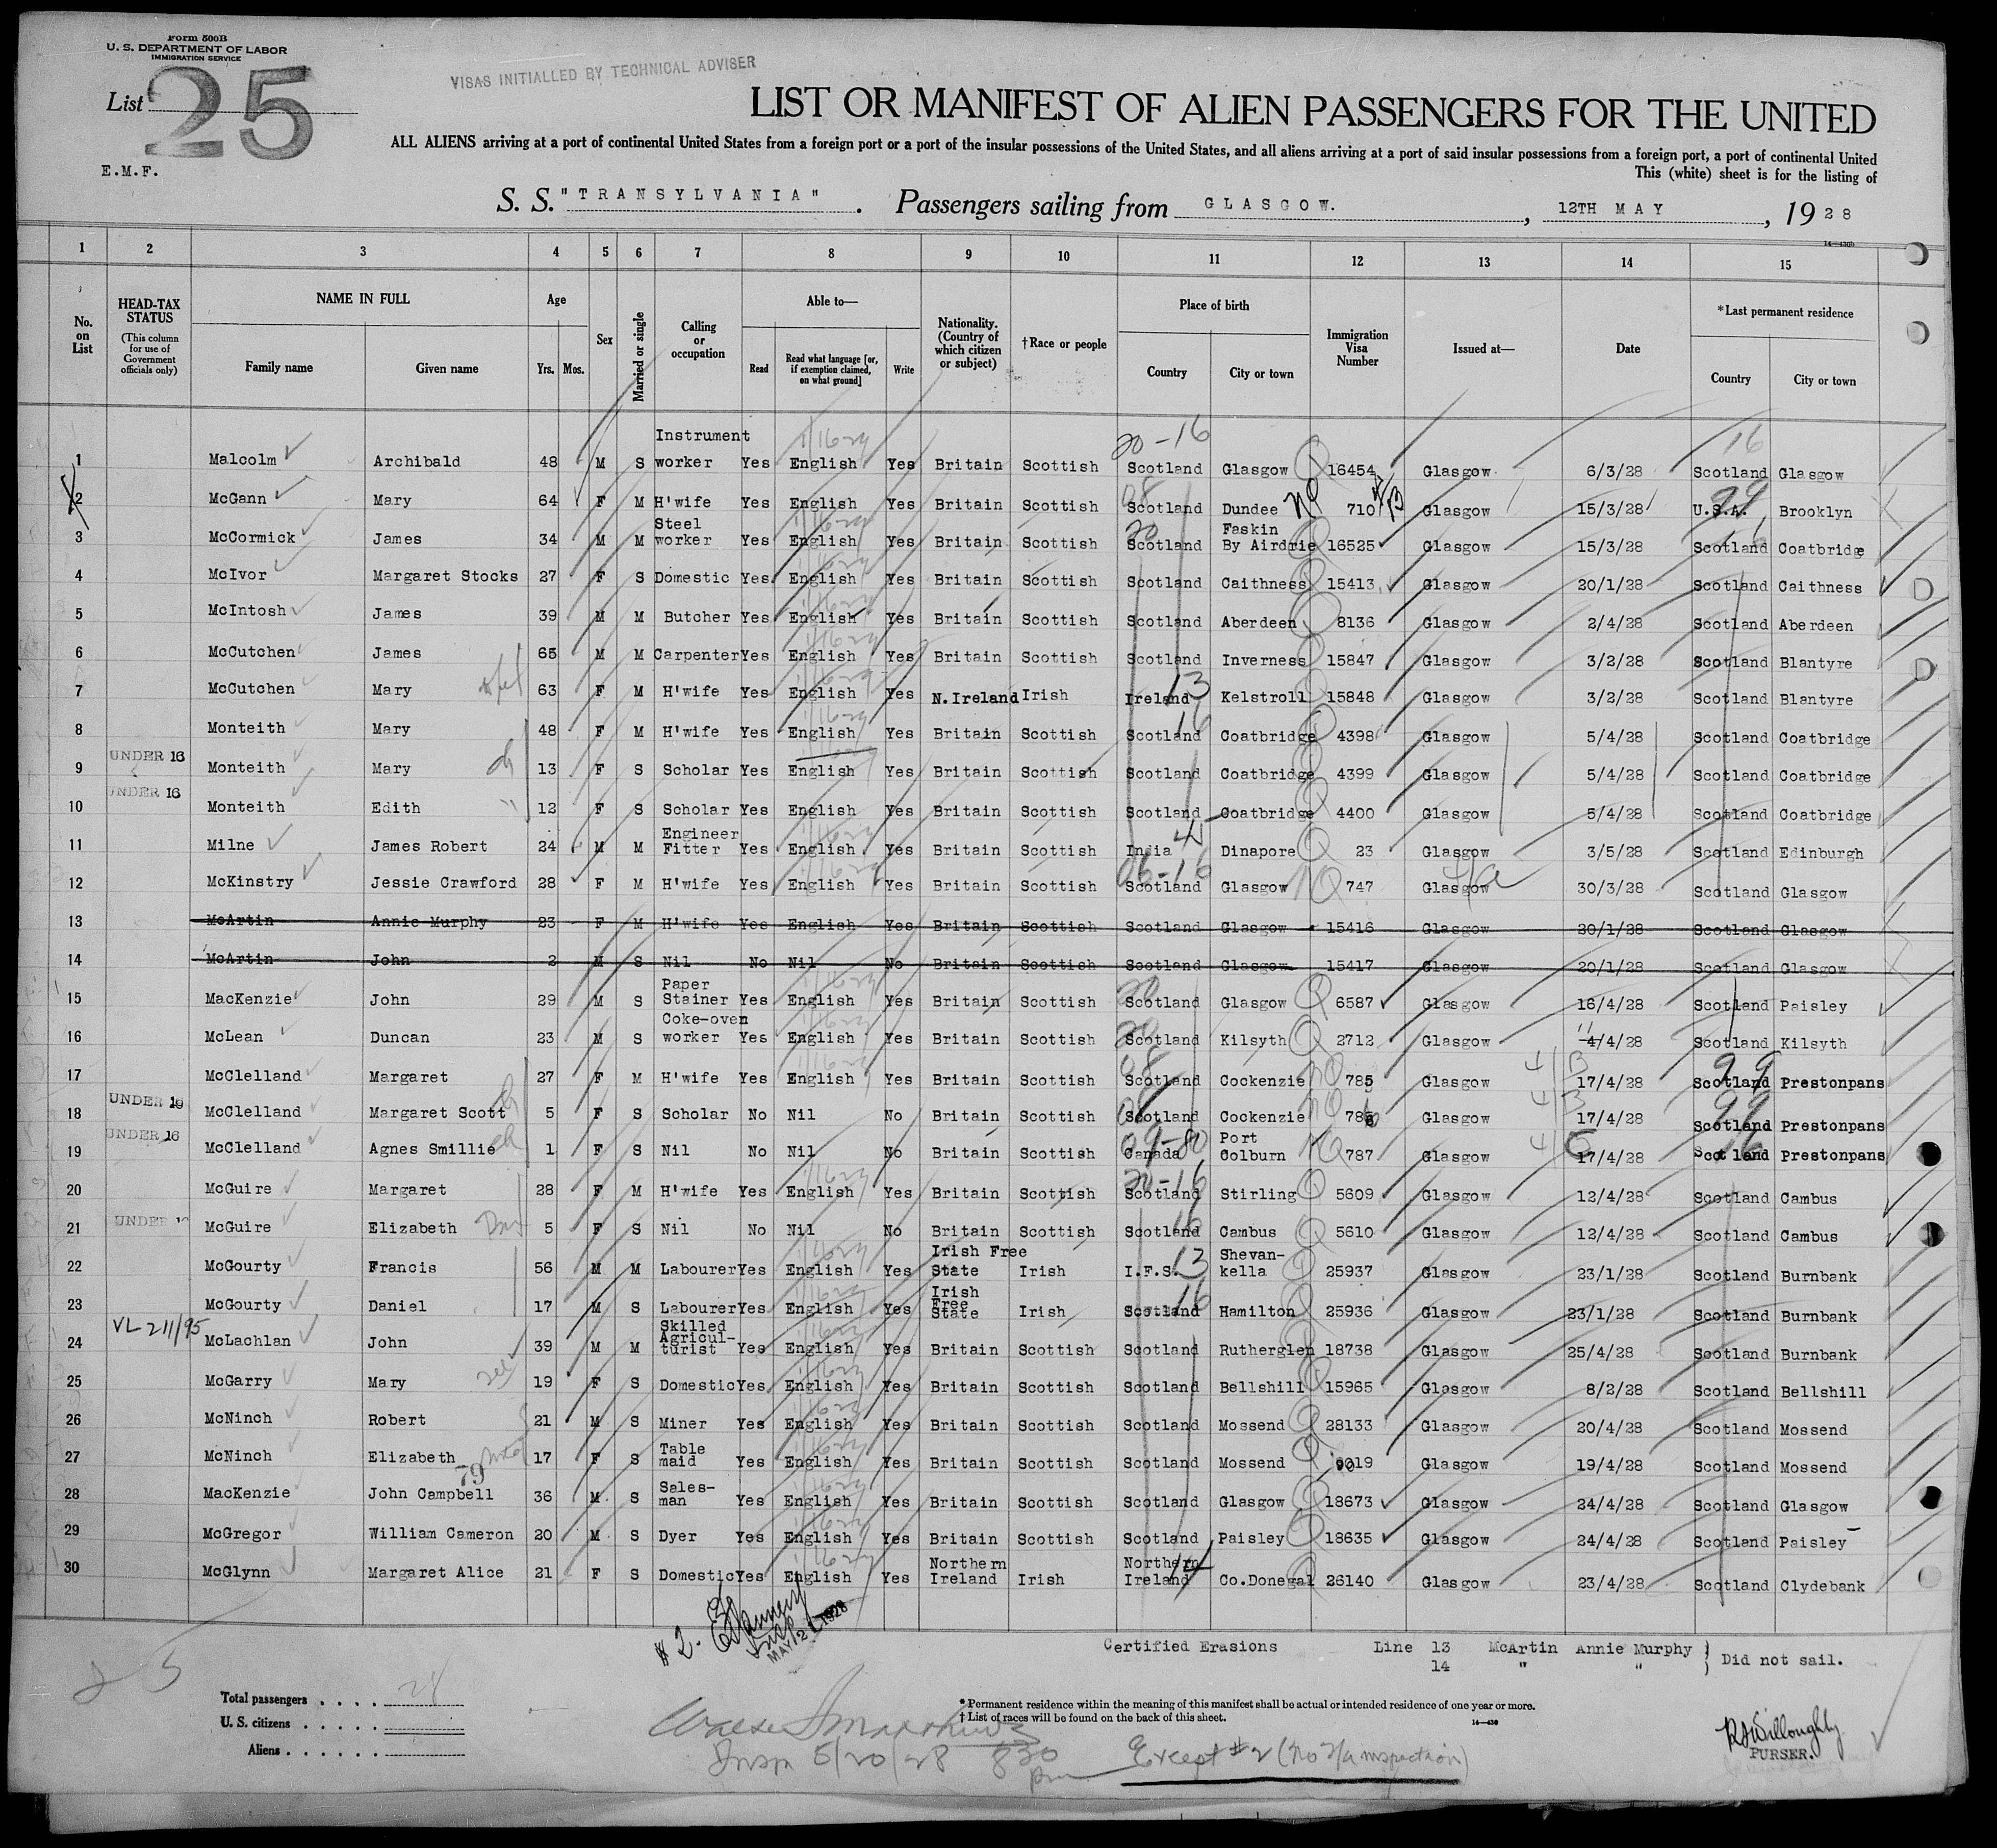 Form 500B
U. S. DEPARTMENT OF LABOR
IMMIGRATION SERVICE
VISAS INITIALLED BY TECHNICAL ADVISER
List 25
LIST OR MANIFEST OF ALIEN PASSENGERS FOR THE UNITED
ALL ALIENS arriving at a port of continental United States from a foreign port or a port of the insular possessions of the United States, and all aliens arriving at a port of said insular possessions from a foreign port, a port of continental United
E.M.F.
This (white) sheet is for the listing of
S. S. "TRANSYLVANIA". Passengers sailing from GLASGOW., 12TH MAY, 1928
14—430b
1 2 3 4 5 6 7 8 9 10 11 12 13 14 15
No. on List
HEAD-TAX STATUS
(This column for use of Government officials only)
NAME IN FULL
Family name
Given name
Age
Yrs. Mos.
Sex
Married or single
Calling or occupation
Able to—
Read
Read what language [or, if exemption claimed, on what ground]
Write
Nationality. (Country of which citizen or subject)
†Race or people
Place of birth
Country
City or town
Immigration Visa Number
Issued at—
Date
*Last permanent residence
Country
City or town
20-16 16
1 Malcolm Archibald 48 M S Instrument worker Yes English Yes Britain Scottish Scotland Glasgow 16454 Glasgow 6/3/28 Scotland Glasgow
2 McGann Mary 64 F M H'wife Yes English Yes Britain Scottish Scotland Dundee 710 Glasgow 15/3/28 U.S.A. Brooklyn
3 McCormick James 34 M M Steel worker Yes English Yes Britain Scottish Scotland Faskin By Airdrie 16525 Glasgow 15/3/28 Scotland Coatbridge
4 McIvor Margaret Stocks 27 F S Domestic Yes English Yes Britain Scottish Scotland Caithness 15413 Glasgow 20/1/28 Scotland Caithness
5 McIntosh James 39 M M Butcher Yes English Yes Britain Scottish Scotland Aberdeen 8136 Glasgow 2/4/28 Scotland Aberdeen
6 McCutchen James 65 M M Carpenter Yes English Yes Britain Scottish Scotland Inverness 15847 Glasgow 3/2/28 Scotland Blantyre
7 McCutchen Mary 63 F M H'wife Yes English Yes N.Ireland Irish Ireland 13 Kelstroll 15848 Glasgow 3/2/28 Scotland Blantyre
8 Monteith Mary 48 F M H'wife Yes English Yes Britain Scottish Scotland 16 Coatbridge 4398 Glasgow 5/4/28 Scotland Coatbridge
9 UNDER 16 Monteith Mary 13 F S Scholar Yes English Yes Britain Scottish Scotland Coatbridge 4399 Glasgow 5/4/28 Scotland Coatbridge
10 UNDER 16 Monteith Edith 12 F S Scholar Yes English Yes Britain Scottish Scotland Coatbridge 4400 Glasgow 5/4/28 Scotland Coatbridge
11 Milne James Robert 24 M M Engineer Fitter Yes English Yes Britain Scottish India Dinapore 23 Glasgow 3/5/28 Scotland Edinburgh
12 McKinstry Jessie Crawford 28 F M H'wife Yes English Yes Britain Scottish 06-16 Scotland Glasgow 747 Glasgow 30/3/28 Scotland Glasgow
13 McArtin Annie Murphy 23 F M H'wife Yes English Yes Britain Scottish Scotland Glasgow 15416 Glasgow 20/1/28 Scotland Glasgow
14 McArtin John 2 M S Nil No Nil No Britain Scottish Scotland Glasgow 15417 Glasgow 20/1/28 Scotland Glasgow
15 MacKenzie John 29 M S Paper Stainer Yes English Yes Britain Scottish Scotland Glasgow 6587 Glasgow 16/4/28 Scotland Paisley
16 McLean Duncan 23 M S Coke-oven worker Yes English Yes Britain Scottish Scotland Kilsyth 2712 Glasgow 11 4/4/28 Scotland Kilsyth
17 McClelland Margaret 27 F M H'wife Yes English Yes Britain Scottish 08 Scotland Cockenzie 785 Glasgow 17/4/28 99 Scotland Prestonpans
18 UNDER 16 McClelland Margaret Scott 5 F S Scholar No Nil No Britain Scottish Scotland Cockenzie 786 Glasgow 17/4/28 99 Scotland Prestonpans
19 UNDER 16 McClelland Agnes Smillie 1 F S Nil No Nil No Britain Scottish Canada Port Colburn 787 Glasgow 17/4/28 Scotland Prestonpans
20 McGuire Margaret 28 F M H'wife Yes English Yes Britain Scottish 20-16 Scotland Stirling 5609 Glasgow 12/4/28 Scotland Cambus
21 UNDER McGuire Elizabeth 5 F S Nil No Nil No Britain Scottish Scotland Cambus 5610 Glasgow 12/4/28 Scotland Cambus
22 McGourty Francis 56 M M Labourer Yes English Yes Irish Free State Irish I.F.S. 13 Shevan-kella 25937 Glasgow 23/1/28 Scotland Burnbank
23 McGourty Daniel 17 M S Labourer Yes English Yes Irish Free State Irish Scotland 16 Hamilton 25936 Glasgow 23/1/28 Scotland Burnbank
24 VL 211/95 McLachlan John 39 M M Skilled Agricul-turist Yes English Yes Britain Scottish Scotland Rutherglen 18738 Glasgow 25/4/28 Scotland Burnbank
25 McGarry Mary 19 F S Domestic Yes English Yes Britain Scottish Scotland Bellshill 15965 Glasgow 8/2/28 Scotland Bellshill
26 McNinch Robert 21 M S Miner Yes English Yes Britain Scottish Scotland Mossend 28133 Glasgow 20/4/28 Scotland Mossend
27 McNinch Elizabeth 17 F S Table maid Yes English Yes Britain Scottish Scotland Mossend Glasgow 19/4/28 Scotland Mossend
28 MacKenzie John Campbell 79 36 M S Sales-man Yes English Yes Britain Scottish Scotland Glasgow 18673 Glasgow 24/4/28 Scotland Glasgow
29 McGregor William Cameron 20 M S Dyer Yes English Yes Britain Scottish Scotland Paisley 18635 Glasgow 24/4/28 Scotland Paisley
30 McGlynn Margaret Alice 21 F S Domestic Yes English Yes Northern Ireland Irish Northern Ireland 14 Co.Donegal 26140 Glasgow 23/4/28 Scotland Clydebank
#2.
Insp
MAY 21 1928
Certified Erasions Line 13 McArtin Annie Murphy } Did not sail.
14 " "
25
Total passengers . . . . 28
U. S. citizens . . . . .
Aliens . . . . . .
* Permanent residence within the meaning of this manifest shall be actual or intended residence of one year or more.
† List of races will be found on the back of this sheet.
14—430
Insp 5/20/28 830 pm Except #2 (no inspection)
R Willoughby
PURSER.